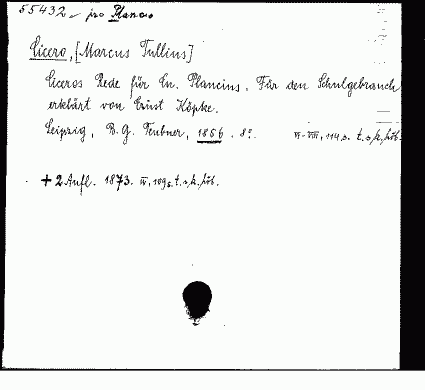 55432 pro Plancio
Cicero, [Marcus Tullius]
Ciceros Rede für Cn. Plancius. Für den Schulgebrauch
erklärt von Ernst Köpke.
Leipzig, B. G. Teubner, 1856. 8°. VI-VIII, 114 s. t.s.k. höb.
+ 2 Aufl. 1873. IV, 109 s. t.s.k. höb.